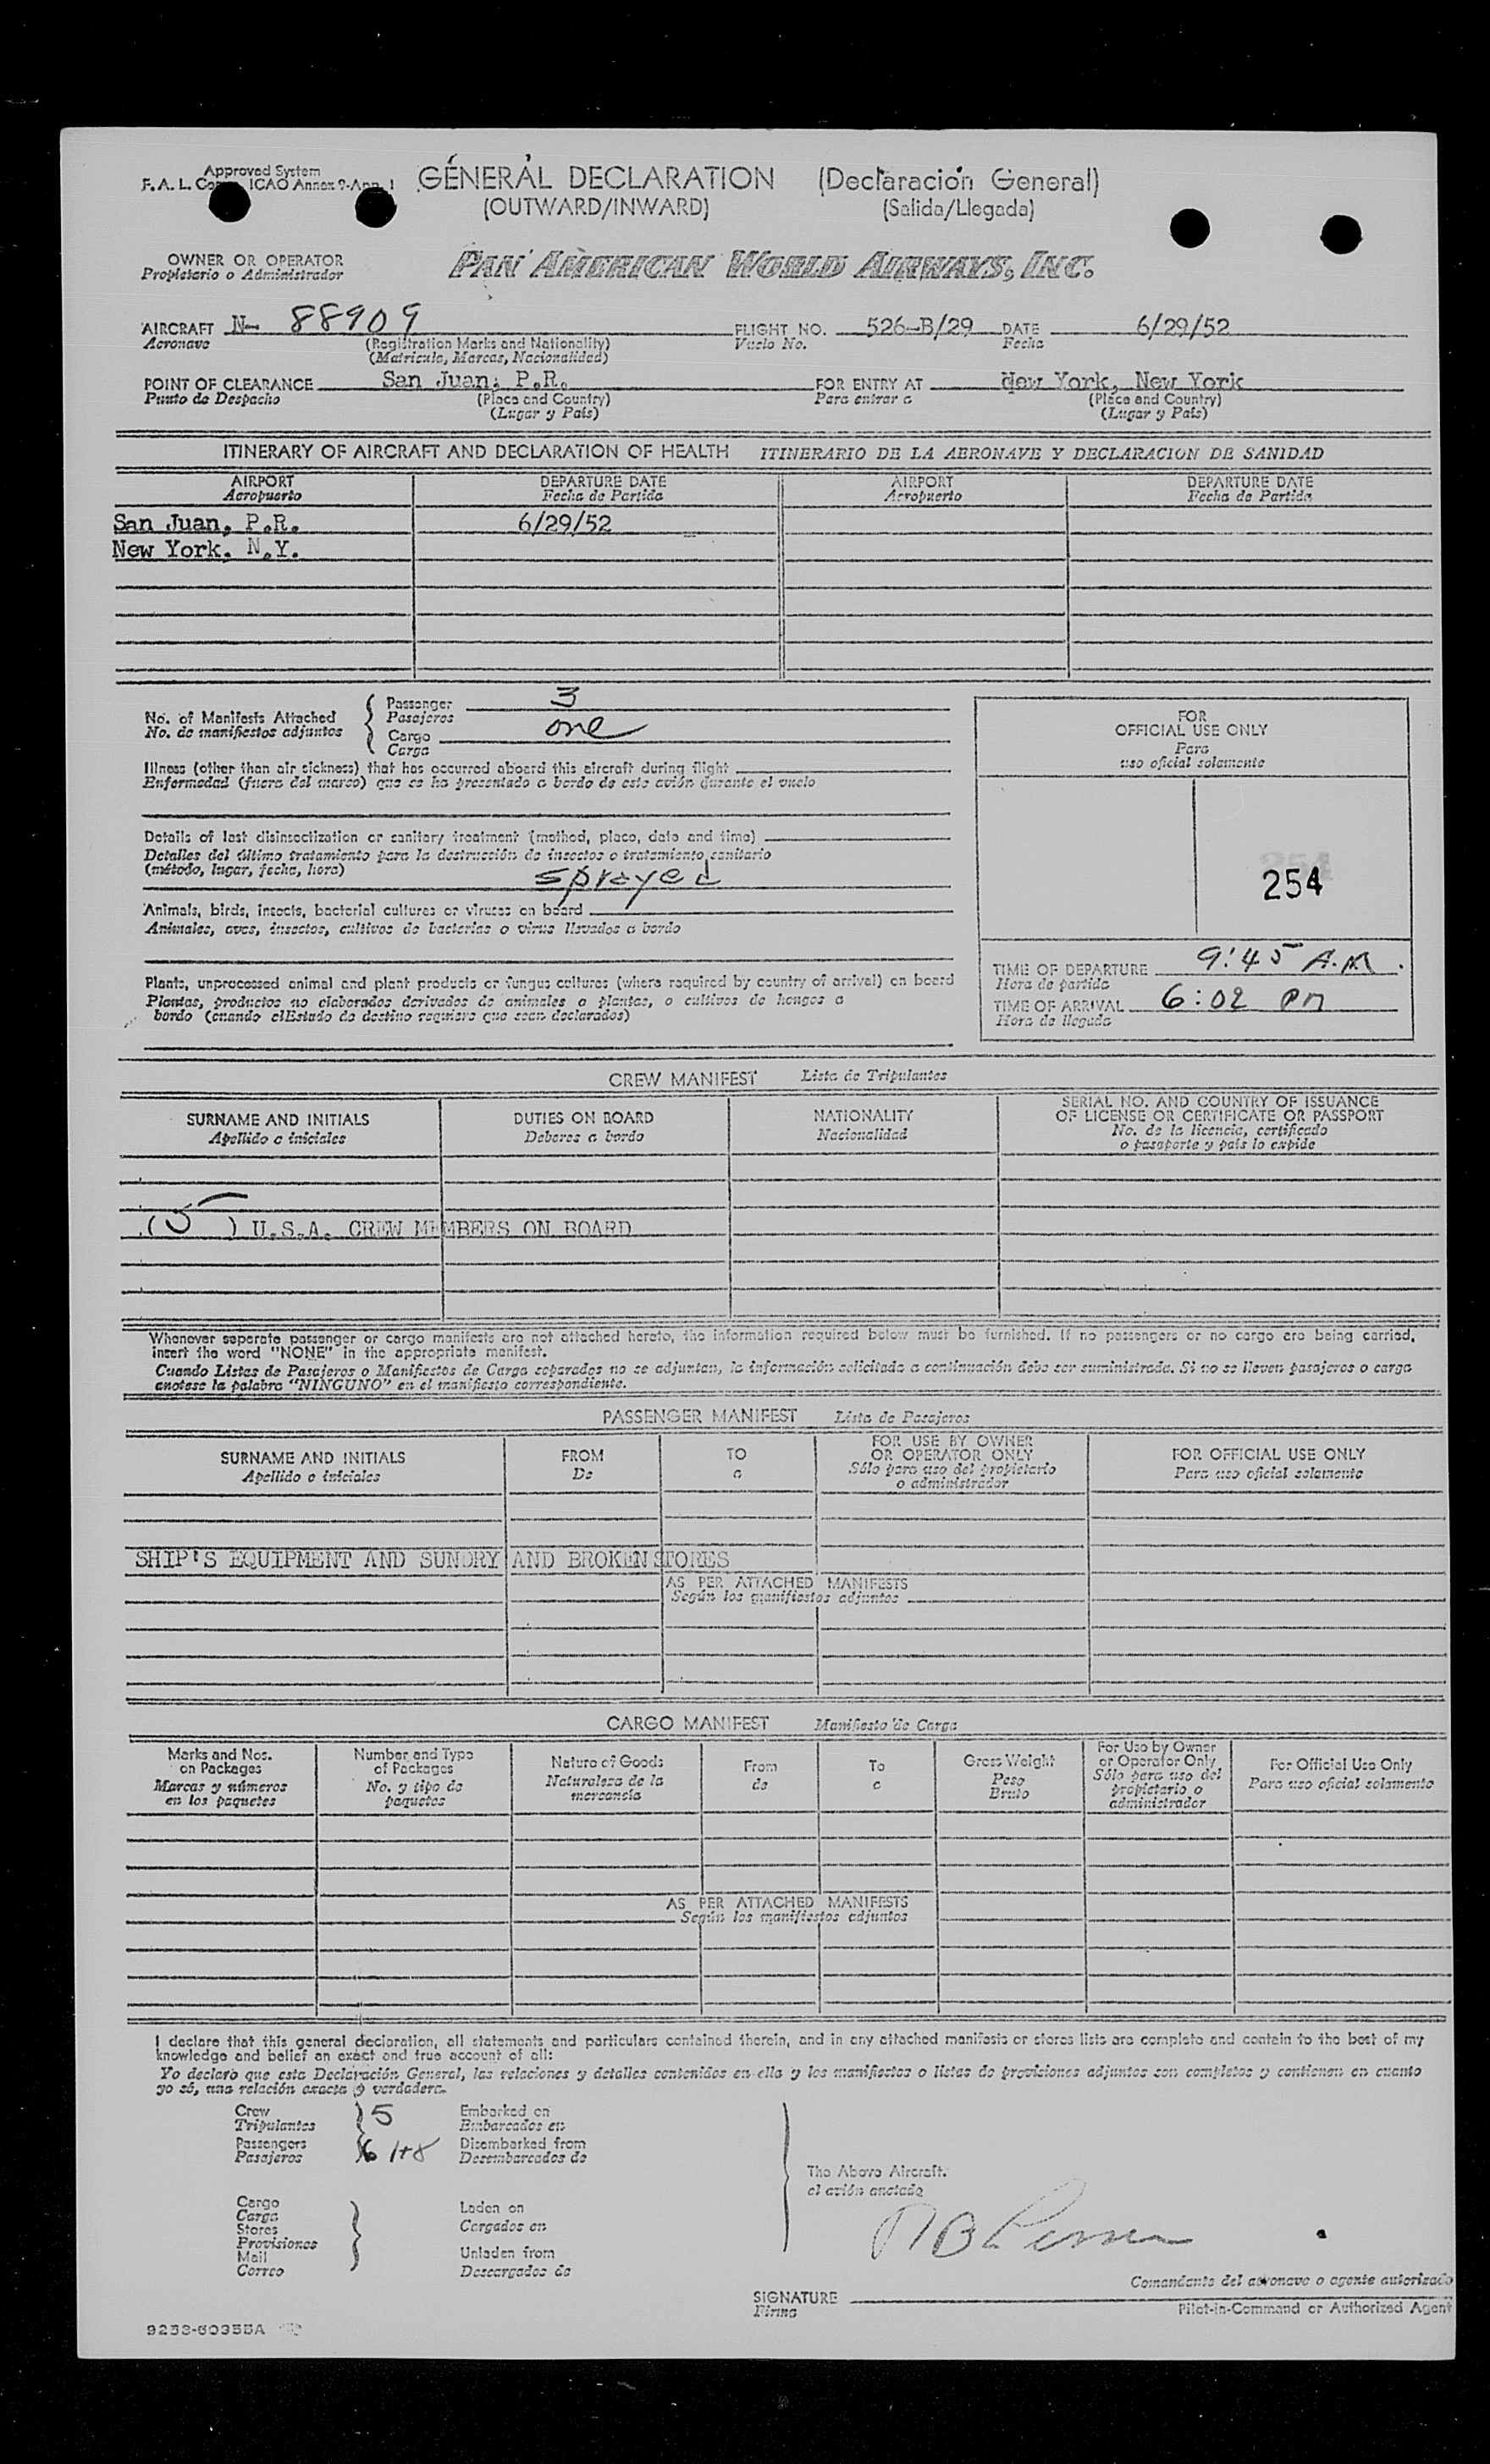 Approved System
F. A. L. ICAO Annex 9-App. 1
GENERAL DECLARATION (Declaración General)
(OUTWARD/INWARD) (Salida/Llegada)
OWNER OR OPERATOR
Propietario o Administrador
PAN AMERICAN WORLD AIRWAYS, INC.
AIRCRAFT N- 88909 FLIGHT NO. 526-B/29 DATE 6/29/52
Aeronave (Registration Marks and Nationality) Vuelo No. Fecha
(Matricula, Marcas, Nacionalidad)
POINT OF CLEARANCE San Juan, P.R. FOR ENTRY AT New York, New York
Punto de Despacho (Place and Country) Para entrar a (Place and Country)
(Lugar y País) (Lugar y País)
ITINERARY OF AIRCRAFT AND DECLARATION OF HEALTH ITINERARIO DE LA AERONAVE Y DECLARACION DE SANIDAD
AIRPORT DEPARTURE DATE AIRPORT DEPARTURE DATE
Aeropuerto Fecha de Partida Aeropuerto Fecha de Partida
San Juan, P.R. 6/29/52
New York, N.Y.
No. of Manifests Attached
No. de manifiestos adjuntos
Passenger 3
Pasajeros
Cargo one
Carga
Illness (other than air sickness) that has occurred aboard this aircraft during flight
Enfermedad (fuera del mareo) que se ha presentado a bordo de este avión durante el vuelo
Details of last disinsectization or sanitary treatment (method, place, date and time)
Detalles del último tratamiento para la destrucción de insectos o tratamiento sanitario
(método, lugar, fecha, hora) sprayed
Animals, birds, insects, bacterial cultures or viruses on board
Animales, aves, insectos, cultivos de bacterias o virus llevados a bordo
Plants, unprocessed animal and plant products or fungus cultures (where required by country of arrival) on board
Plantas, productos no elaborados derivados de animales o plantas, o cultivos de hongos a
bordo (cuando el Estado de destino requiere que sean declarados)
FOR
OFFICIAL USE ONLY
Para
uso oficial solamente
254
TIME OF DEPARTURE 9:45 A.M.
Hora de partida
TIME OF ARRIVAL 6:02 PM
Hora de llegada
CREW MANIFEST Lista de Tripulantes
SURNAME AND INITIALS DUTIES ON BOARD NATIONALITY SERIAL NO. AND COUNTRY OF ISSUANCE
OF LICENSE OR CERTIFICATE OR PASSPORT
Apellido e iniciales Deberes a bordo Nacionalidad No. de la licencia, certificado
o pasaporte y país lo expide
(5) U.S.A. CREW MEMBERS ON BOARD
Whenever separate passenger or cargo manifests are not attached hereto, the information required below must be furnished. If no passengers or no cargo are being carried,
insert the word "NONE" in the appropriate manifest.
Cuando Listas de Pasajeros o Manifiestos de Carga separados no se adjuntan, la información solicitada a continuación debe ser suministrada. Si no se lleven pasajeros o carga
anotese la palabra "NINGUNO" en el manifiesto correspondiente.
PASSENGER MANIFEST Lista de Pasajeros
SURNAME AND INITIALS FROM TO FOR USE BY OWNER
OR OPERATOR ONLY FOR OFFICIAL USE ONLY
Apellido e iniciales De a Sólo para uso del propietario
o administrador Para uso oficial solamente
SHIP'S EQUIPMENT AND SUNDRY AND BROKEN STORES
AS PER ATTACHED MANIFESTS
Según los manifiestos adjuntos
CARGO MANIFEST Manifiesto de Carga
Marks and Nos.
on Packages
Marcas y números
en los paquetes
Number and Type
of Packages
No. y tipo de
paquetes
Nature of Goods
Naturaleza de la
mercancía
From
de
To
a
Gross Weight
Peso
Bruto
For Use by Owner
or Operator Only
Sólo para uso del
propietario o
administrador
For Official Use Only
Para uso oficial solamente
AS PER ATTACHED MANIFESTS
Según los manifiestos adjuntos
I declare that this general declaration, all statements and particulars contained therein, and in any attached manifests or stores lists are complete and contain to the best of my
knowledge and belief an exact and true account of all:
Yo declaro que esta Declaración General, las relaciones y detalles contenidos en ella y los manifiestos o listas de provisiones adjuntos son completos y contienen en cuanto
yo sé, una relación exacta y verdadera.
Crew 5 Embarked on
Tripulantes Embarcados en
Passengers Disembarked from
Pasajeros Desembarcados de
Cargo
Carga
Stores
Provisiones
Mail
Correo
Laden on
Cargados en
Unladen from
Descargados de
The Above Aircraft.
el avión anotado
Comandante del aeronave o agente autorizado
SIGNATURE
Firma
Pilot-in-Command or Authorized Agent
9253-60355A